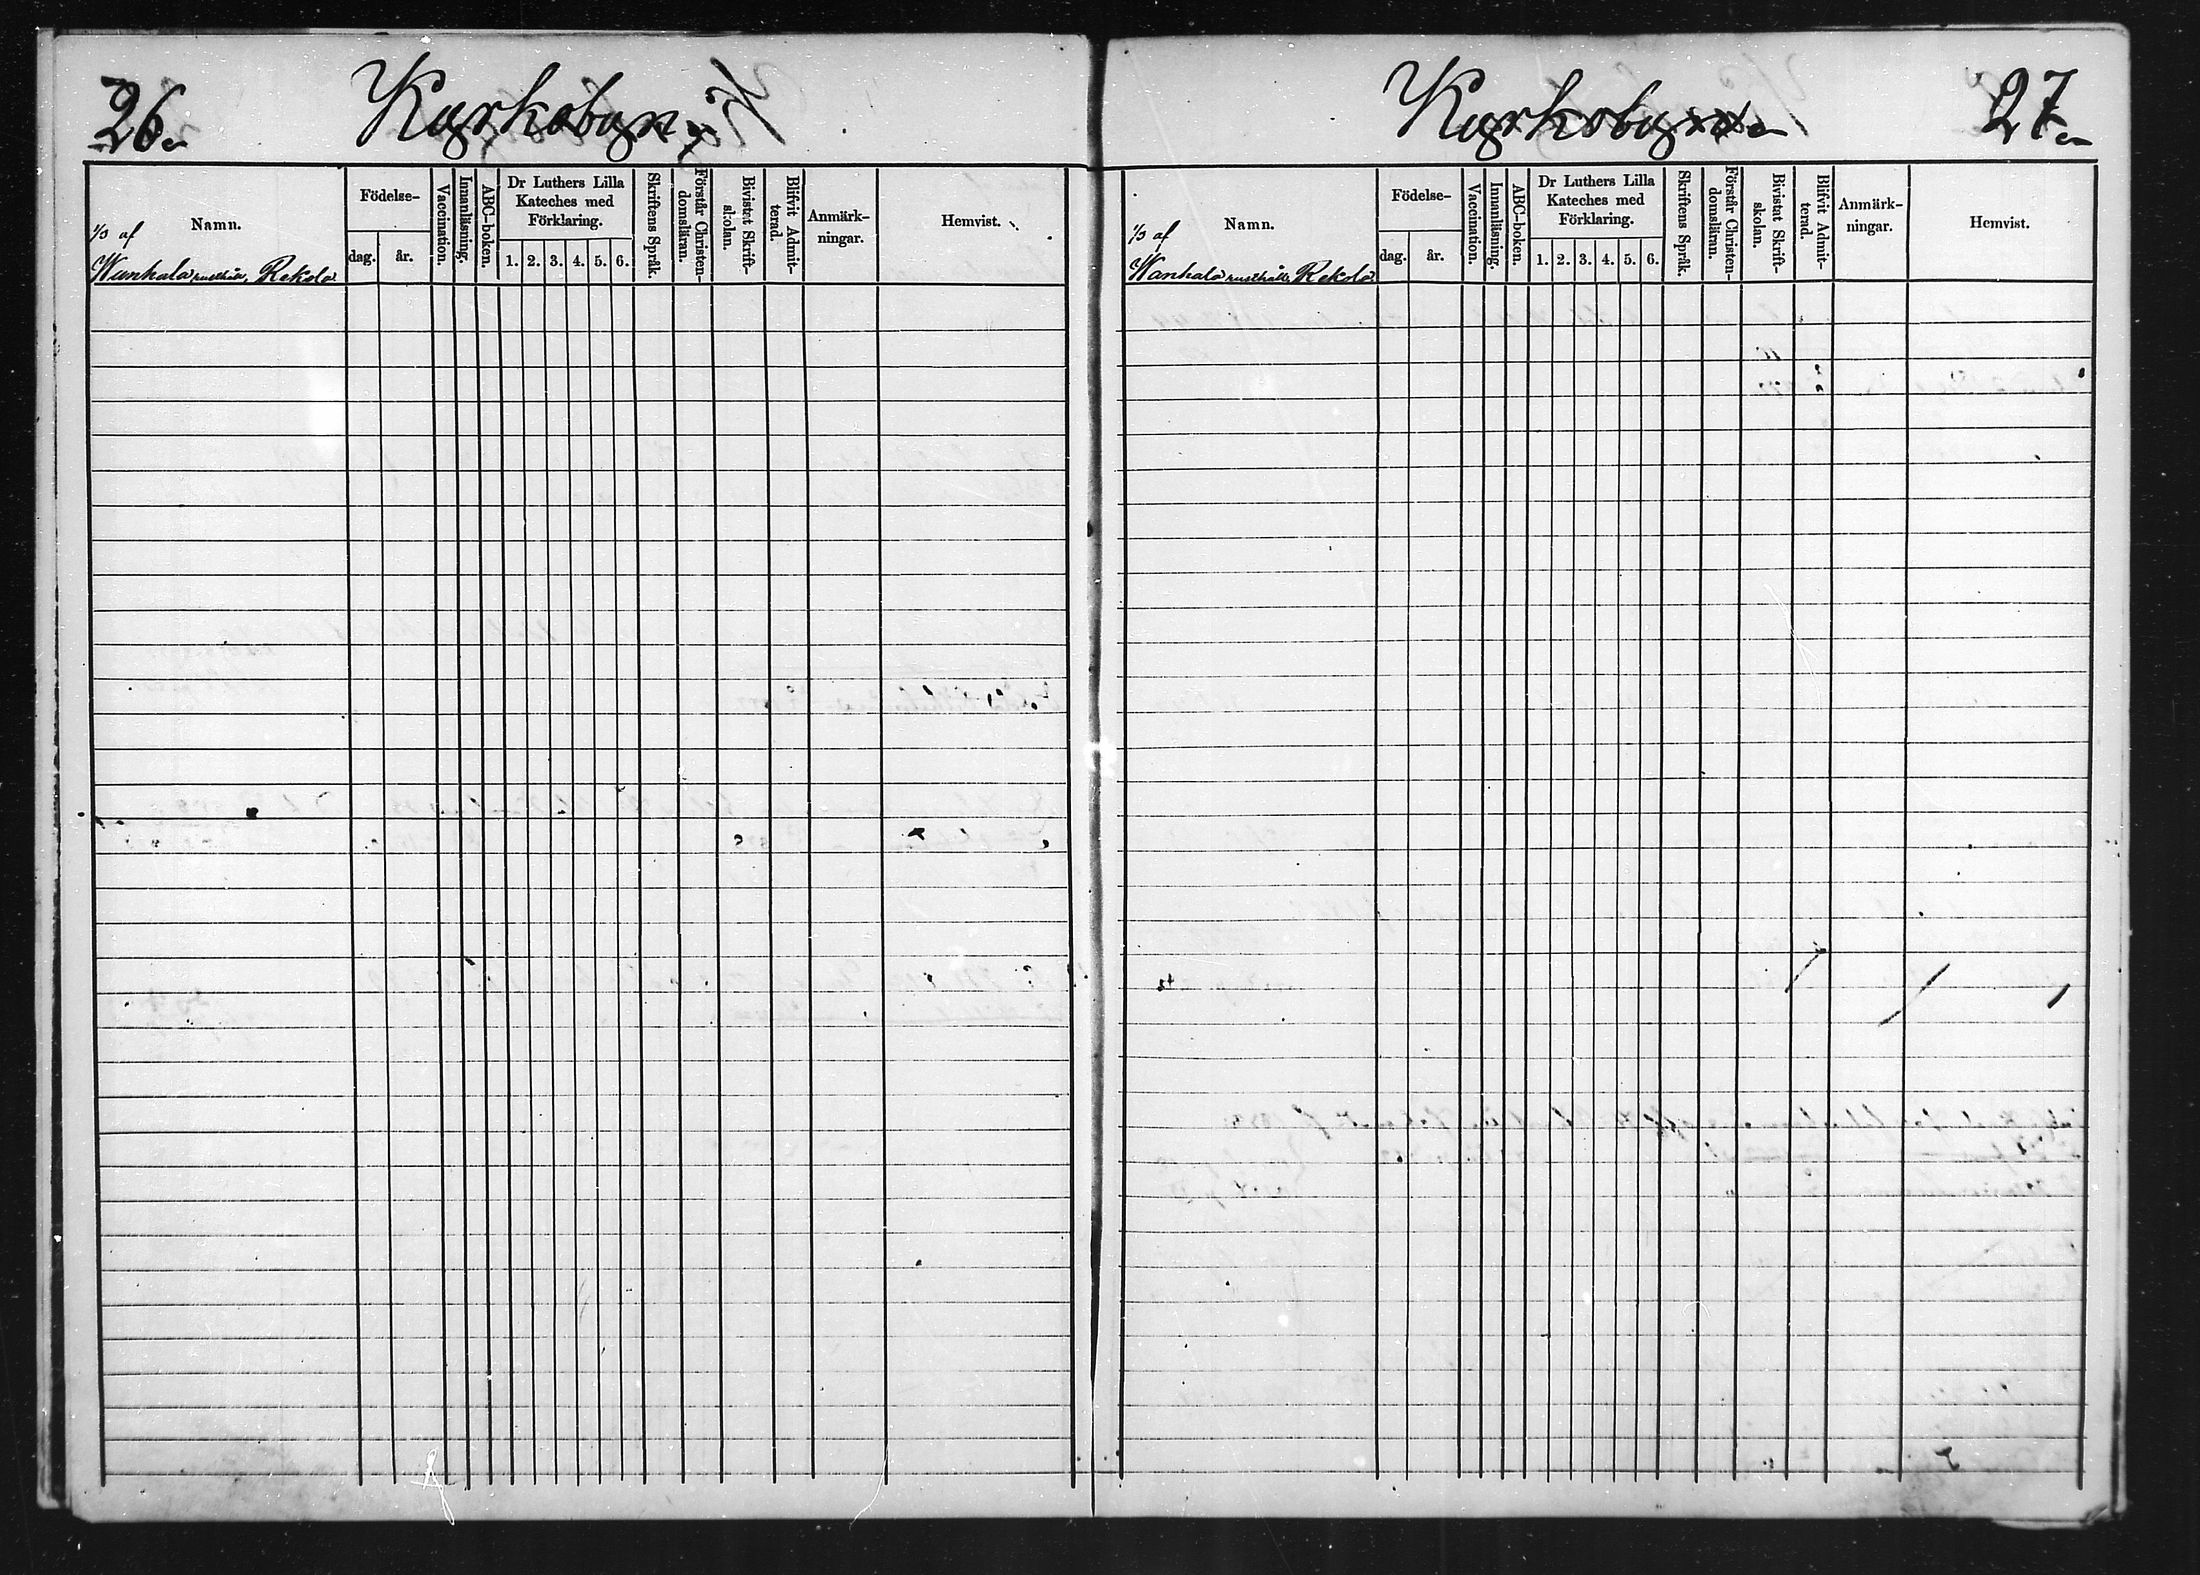 26.
Kyrkobyn.
Namn.
1/3 af
Wanhala rusthåll, Rekola
Födelse-
dag. år.
Vaccination.
Innanläsning.
ABC-boken.
Dr Luthers Lilla
Kateches med
Förklaring.
1. 2. 3. 4. 5. 6.
Skriftens Språk.
Förstår Christen-
domsläran.
Bivistat Skrift-
skolan.
Blifvit Admit-
terad.
Anmärk-
ningar.
Hemvist.
Kyrkoby
27.
Namn.
1/3 af
Wanhala rusthåll, Rekola
Födelse-
dag. år.
Vaccination.
Innanläsning.
ABC-boken.
Dr Luthers Lilla
Kateches med
Förklaring.
1. 2. 3. 4. 5. 6.
Skriftens Språk.
Förstår Christen-
domsläran.
Bivistat Skrift-
skolan.
Blifvit Admit-
terad.
Anmärk-
ningar.
Hemvist.